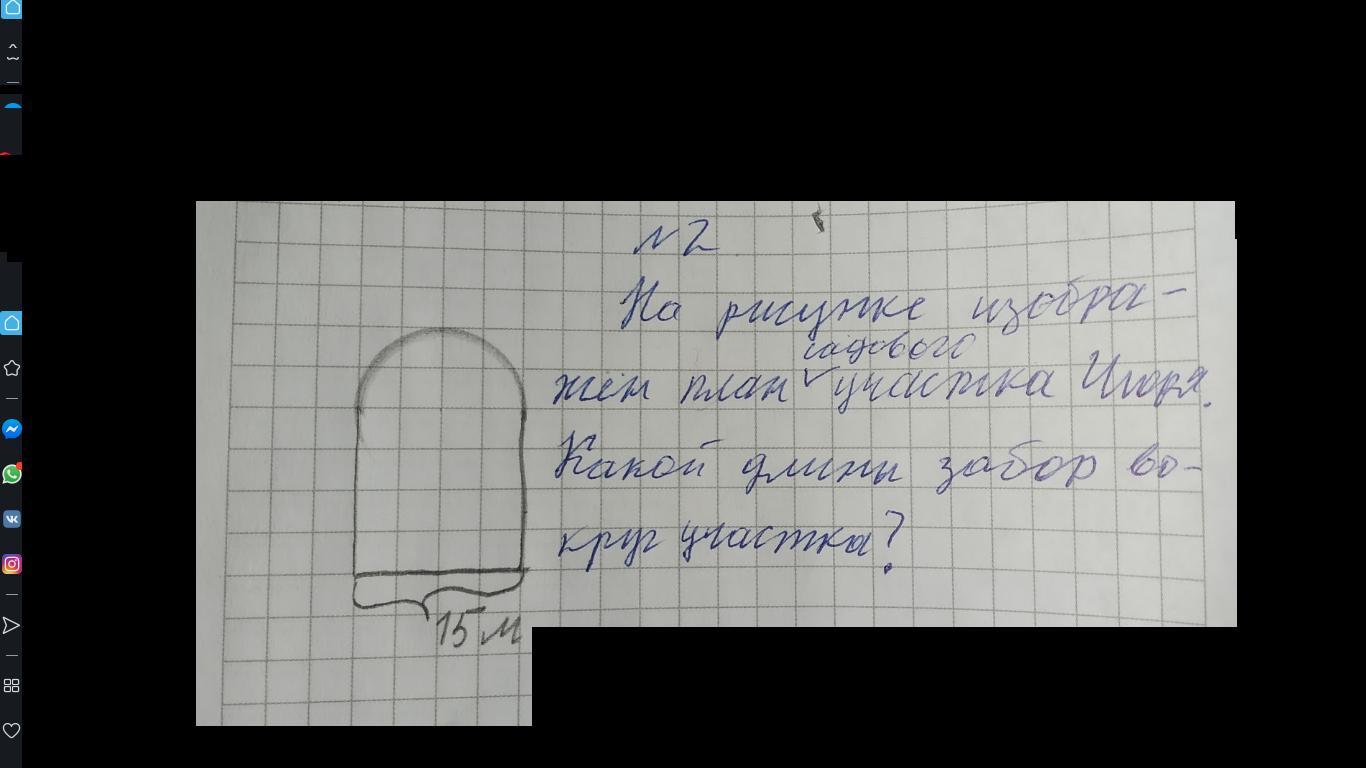 №2
На рисунке изобра-
садового
жен план участка Игоря.
Какой длины забор во-
круг участка?
15 м